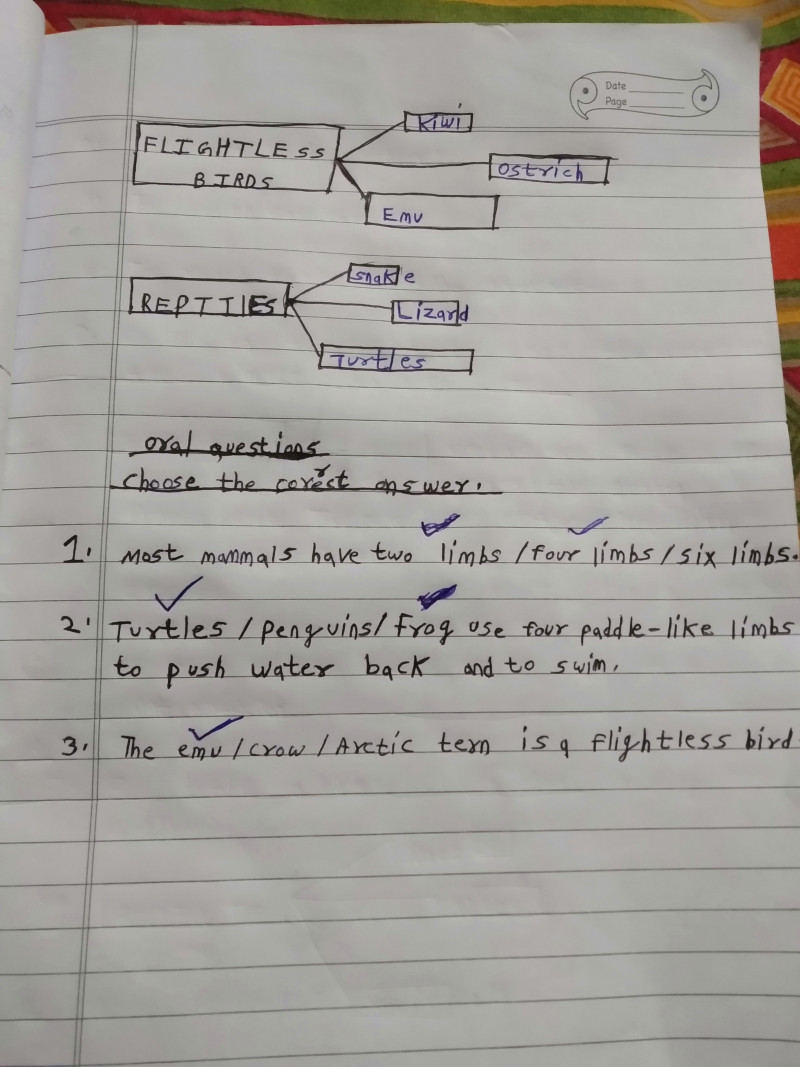 Date
Page
Kiwi
FLIGHTLESS
BIRDS
Ostrich
Emu
Snake
REPTIlES
Lizard
Turtles
oral questions
choose the corerct answer.
1. Most mammals have two limbs / four limbs / six limbs.
2. Turtles / penguins / frog use four paddle-like limbs
to push water back and to swim.
3. The emu / crow / Arctic tern is a flightless bird